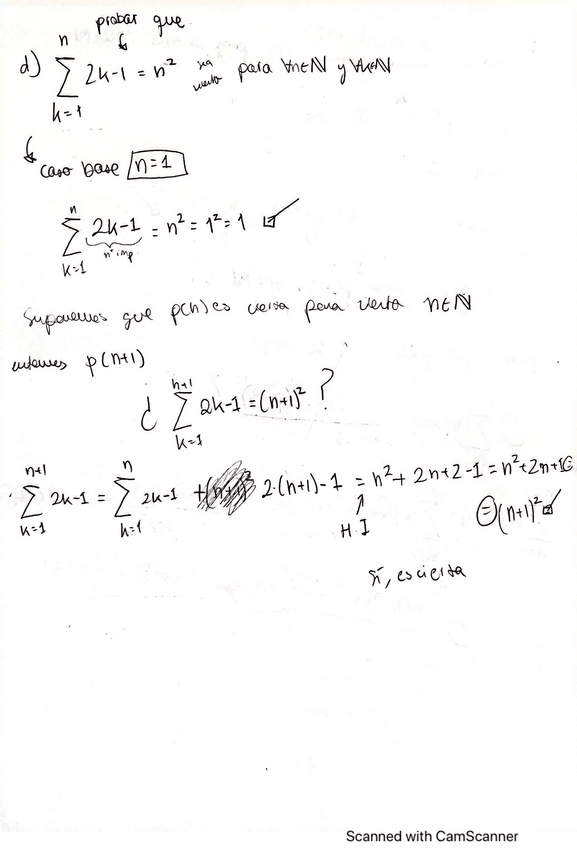 probar que
d) ∑_{k=1}^{n} 2k-1 = n² sea cierto para ∀n∈ℕ y ∀k∈ℕ
caso base n=1
∑_{k=1}^{n} 2k-1 = n² = 1² = 1 ☑
nº imp
Suponemos que p(n) es cierta para cierta n∈ℕ
entonces p(n+1)
¿ ∑_{k=1}^{n+1} 2k-1 = (n+1)² ?
∑_{k=1}^{n+1} 2k-1 = ∑_{k=1}^{n} 2k-1 + 2·(n+1)-1 = n²+2n+2-1 = n²+2n+1
H.I
= (n+1)² ☑
sí, es cierta
Scanned with CamScanner